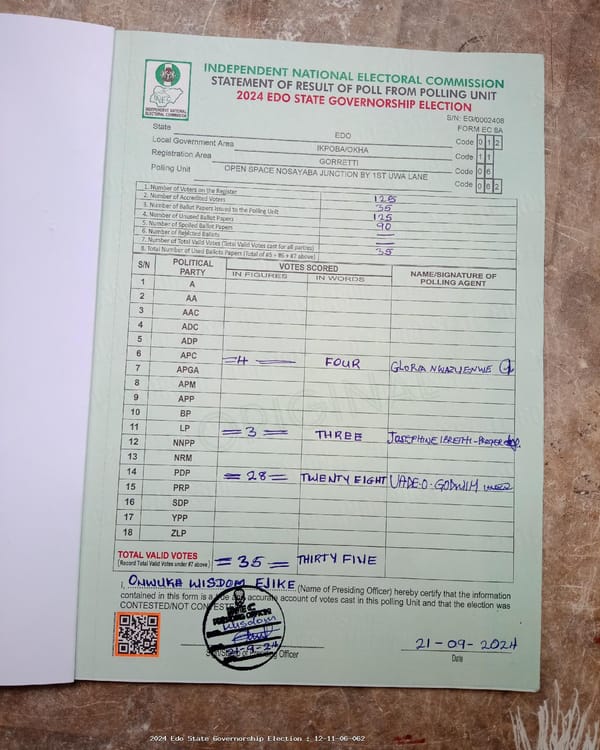 INEC
INDEPENDENT NATIONAL
ELECTORAL COMMISSION
INDEPENDENT NATIONAL ELECTORAL COMMISSION
STATEMENT OF RESULT OF POLL FROM POLLING UNIT
2024 EDO STATE GOVERNORSHIP ELECTION
S/N: EG/0002408
FORM EC 8A
State EDO Code 0 1 2
Local Government Area IKPOBA/OKHA Code 1 1
Registration Area GORRETTI Code 0 6
Polling Unit OPEN SPACE NOSAYABA JUNCTION BY 1ST UWA LANE Code 0 6 2
1. Number of Voters on the Register 125
2. Number of Accredited Voters 35
3. Number of Ballot Papers Issued to the Polling Unit 125
4. Number of Unused Ballot Papers 90
5. Number of Spoiled Ballot Papers —
6. Number of Rejected Ballots —
7. Number of Total Valid Votes (Total Valid Votes cast for all parties)
8. Total Number of Used Ballots Papers (Total of #5 + #6 + #7 above) 35
S/N POLITICAL PARTY VOTES SCORED NAME/SIGNATURE OF POLLING AGENT
IN FIGURES IN WORDS
1 A
2 AA
3 AAC
4 ADC
5 ADP
6 APC =4= FOUR GLORIA
7 APGA
8 APM
9 APP
10 BP
11 LP =3= THREE JOSEPHINE
12 NNPP
13 NRM
14 PDP =28= TWENTY EIGHT
15 PRP
16 SDP
17 YPP
18 ZLP
TOTAL VALID VOTES =35= THIRTY FIVE
(Record Total Valid Votes under #7 above)
I, ONWUKA WISDOM EJIKE (Name of Presiding Officer) hereby certify that the information
contained in this form is a true and accurate account of votes cast in this polling Unit and that the election was
CONTESTED/NOT CONTESTED
INEC
PRESIDING OFFICER
Wisdom
21-9-24
Presiding Officer
21-09-2024
Date
ORIGINAL
2024 Edo State Governorship Election : 12-11-06-062